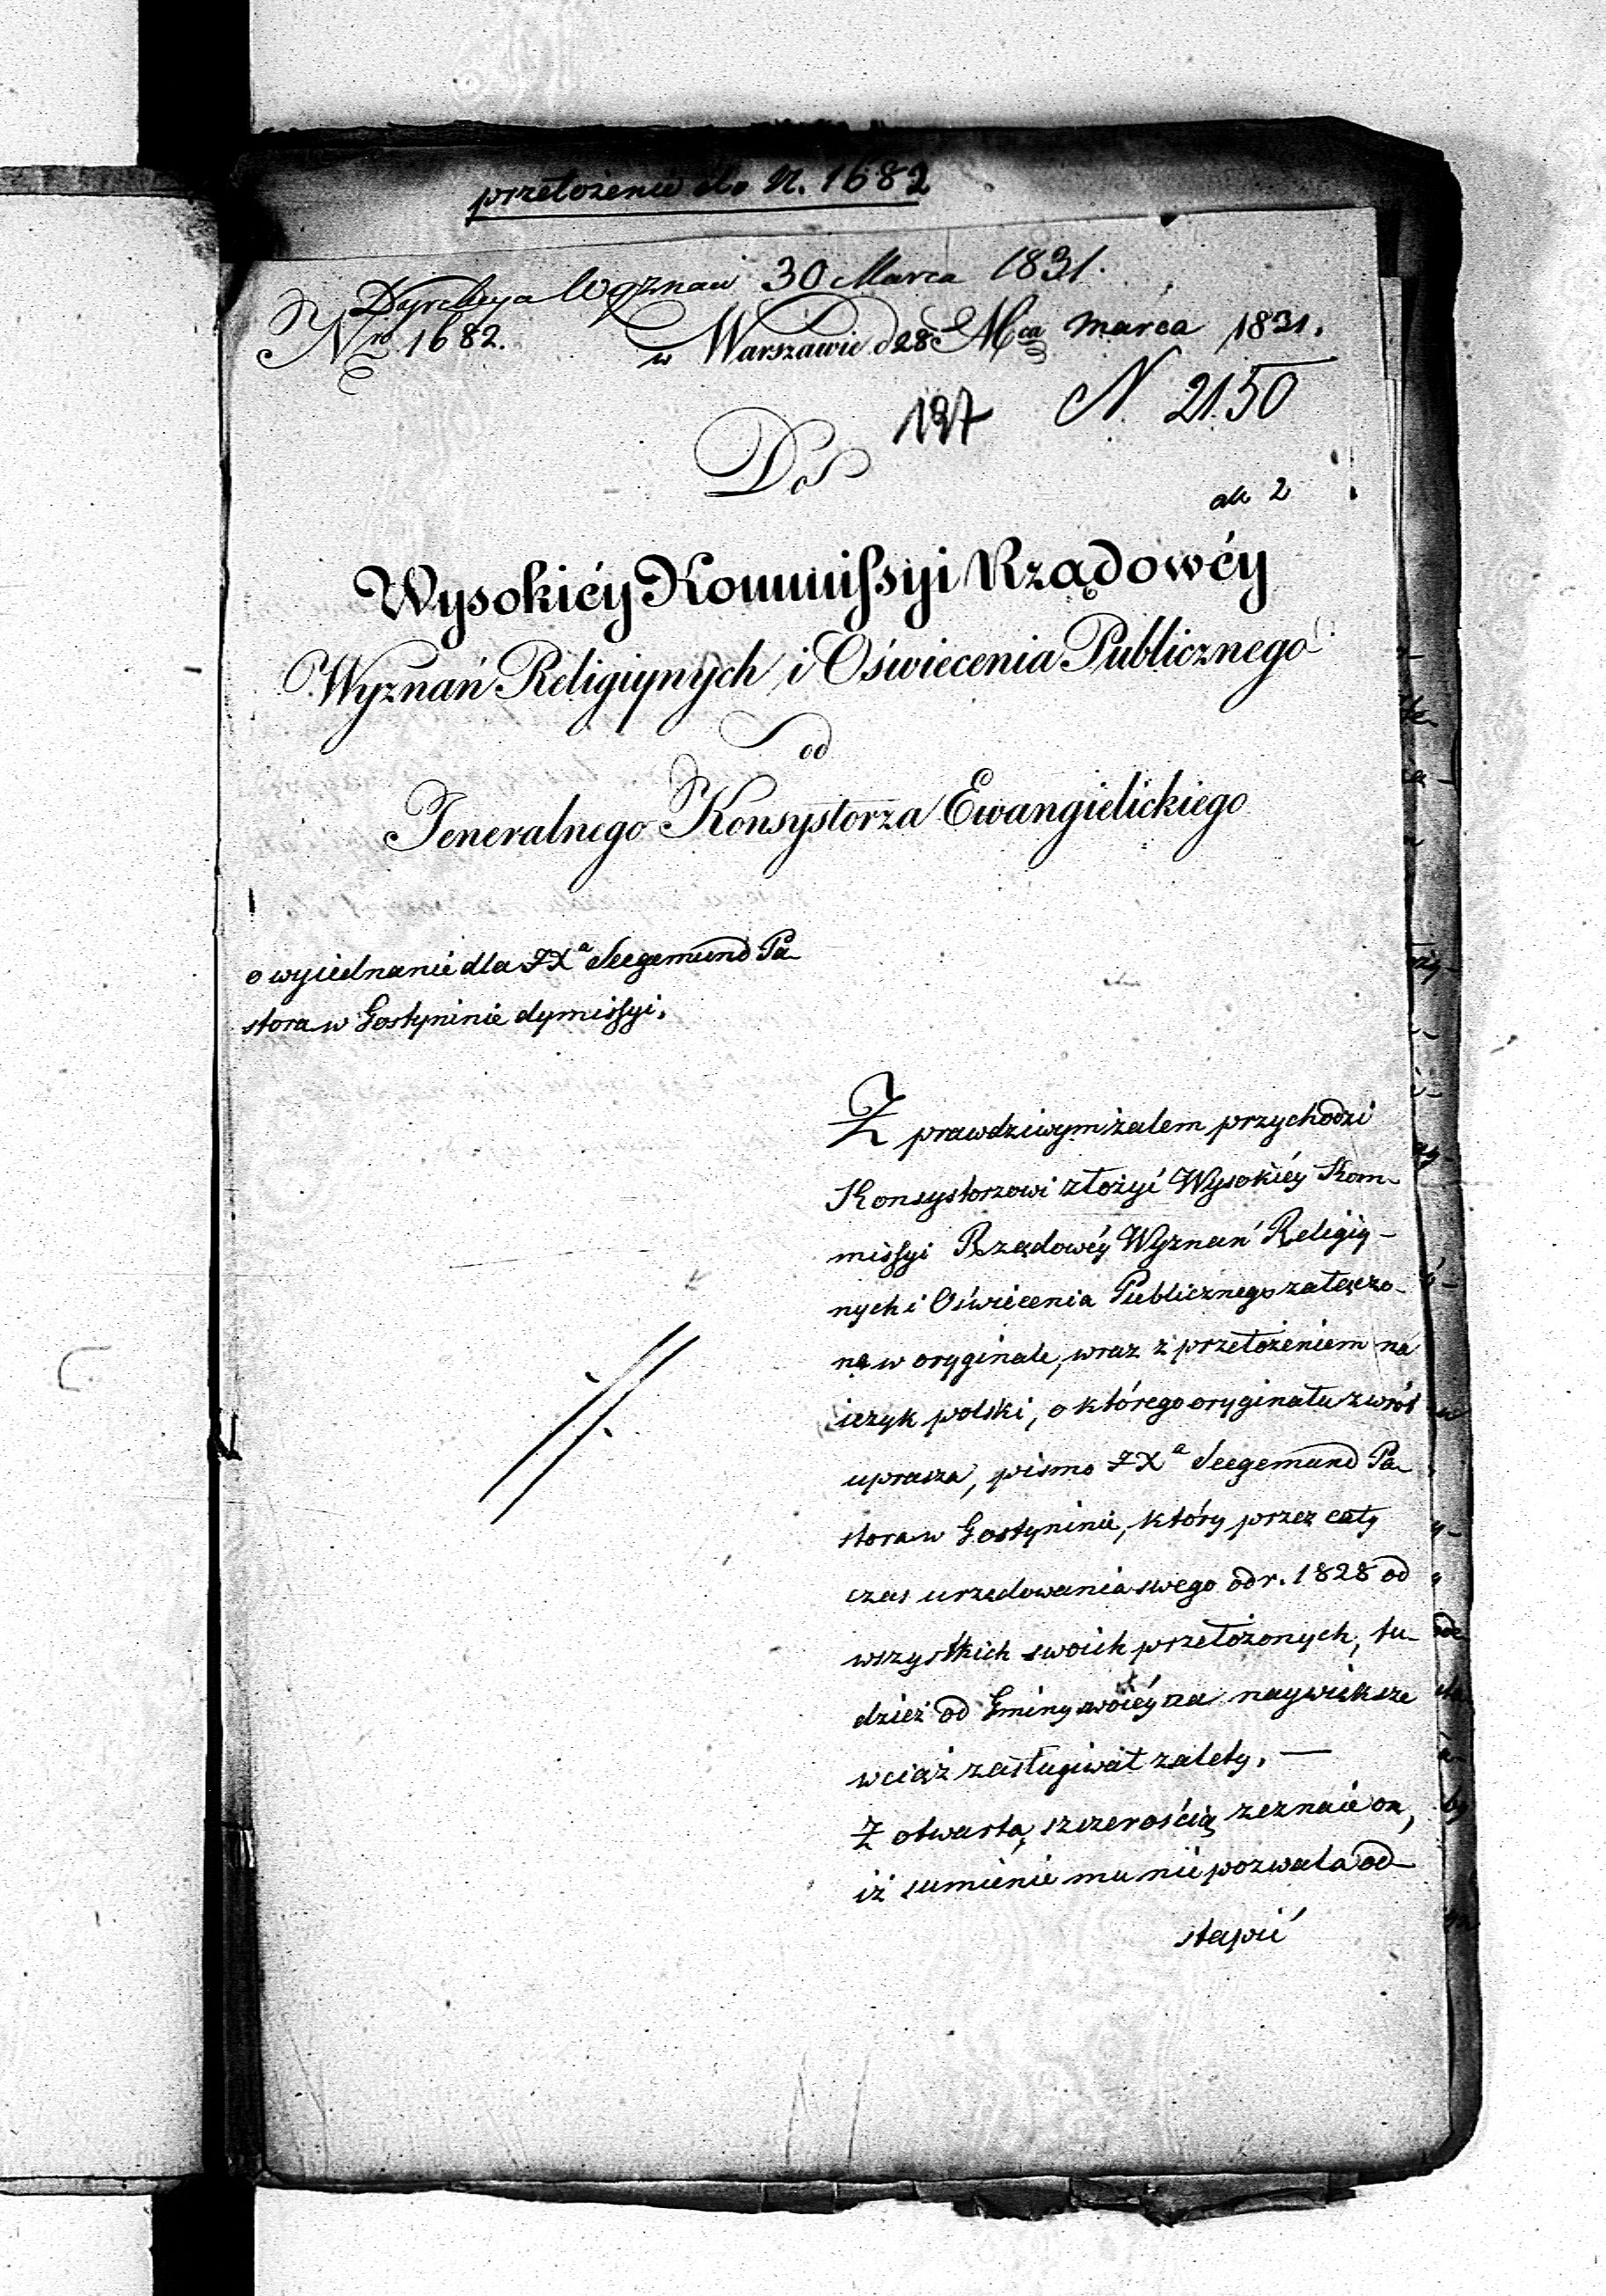 przełożenie do N. 1682
Dyrekcya Wyznań 30 Marca 1831.
Nro 1682. w Warszawie d 28 Mca marca 1831.
197 N. 2150
Do
Wysokiéy Kommissyi Rządowéy
Wyznań Religiynych i Oświecenia Publicznego
od
Jeneralnego Konsystorza Ewangielickiego
o wyiednanie dla JXa Seegemund Pa-
stora w Gostyninie dymissyi.
Z prawdziwym żalem przychodzi
Konsystorzowi złożyć Wysokiéy Kom-
missyi Rządowéy Wyznań Religiy-
nych i Oświecenia Publicznego załączo-
ne w oryginale, wraz z przełożeniem na
ięzyk polski, o którego oryginału zwrot
uprasza, pismo JXa Seegemund Pa-
stora w Gostyninie, który przez cały
czas urzędowania swego od r. 1828 od
wszystkich swoich przełożonych, tu-
dzież od Gminy swoiéy na naywiększe
wciąż zasługiwał zalety. —
Z otwartą szczerością zeznaie on,
iż sumienie mu nie pozwala od-
stąpić